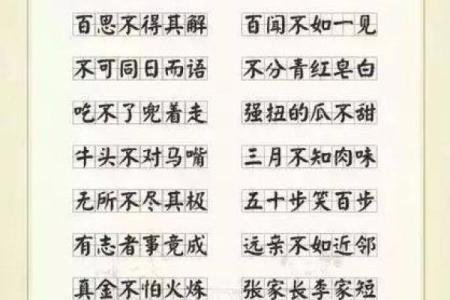 百思不得其解 百闻不如一见
不可同日而语 不分青红皂白
吃不了兜着走 强扭的瓜不甜
牛头不对马嘴 三月不知肉味
无所不尽其极 五十步笑百步
有志者事竟成 远亲不如近邻
真金不怕火炼 张家长李家短